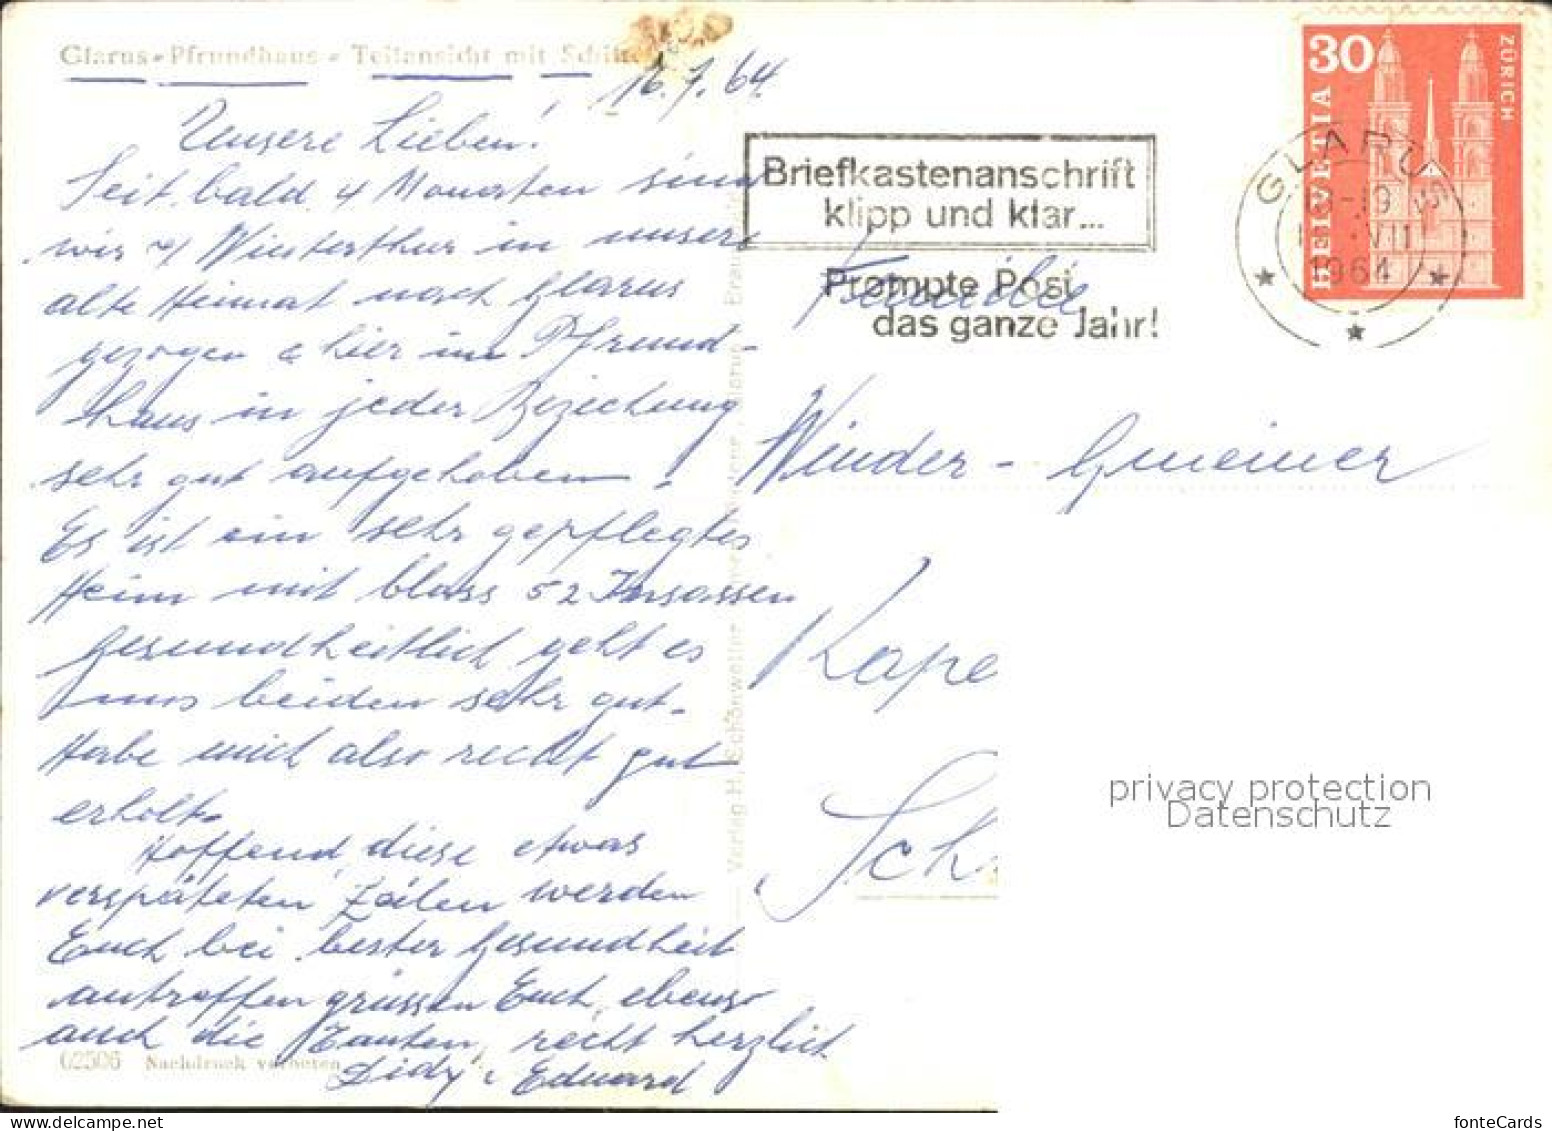 Glarus-Pfrundhaus - Teilansicht mit
16.7.64
Unsere Lieben!
Seit bald 4 Monaten sind
wir v/ Winterthur in unsere
alte Heimat nach Glarus
gezogen & hier im Pfrund-
haus in jeder Beziehung
sehr gut aufgehoben.
Es ist ein sehr gepflegtes
Heim mit bloss 52 Insassen
Gesundheitlich geht es
uns beiden sehr gut.
Habe mich also recht gut
erholt.
Hoffend, diese etwas
verspäteten Zeilen werden
Euch bei bester Gesundheit
antreffen grüssen Euch, ebenso
auch die Tanten, recht herzlich
Didy & Eduard
02506 Nachdruck verboten
Verlag H. Schönwetter
Glarus
Briefkastenanschrift
klipp und klar...
Prompte Post
das ganze Jahr!
GLARUS
1964
30
HELVETIA
ZÜRICH
Familie
Winder - Gmeiner
Kape
Sch
privacy protection
Datenschutz
fonteCards